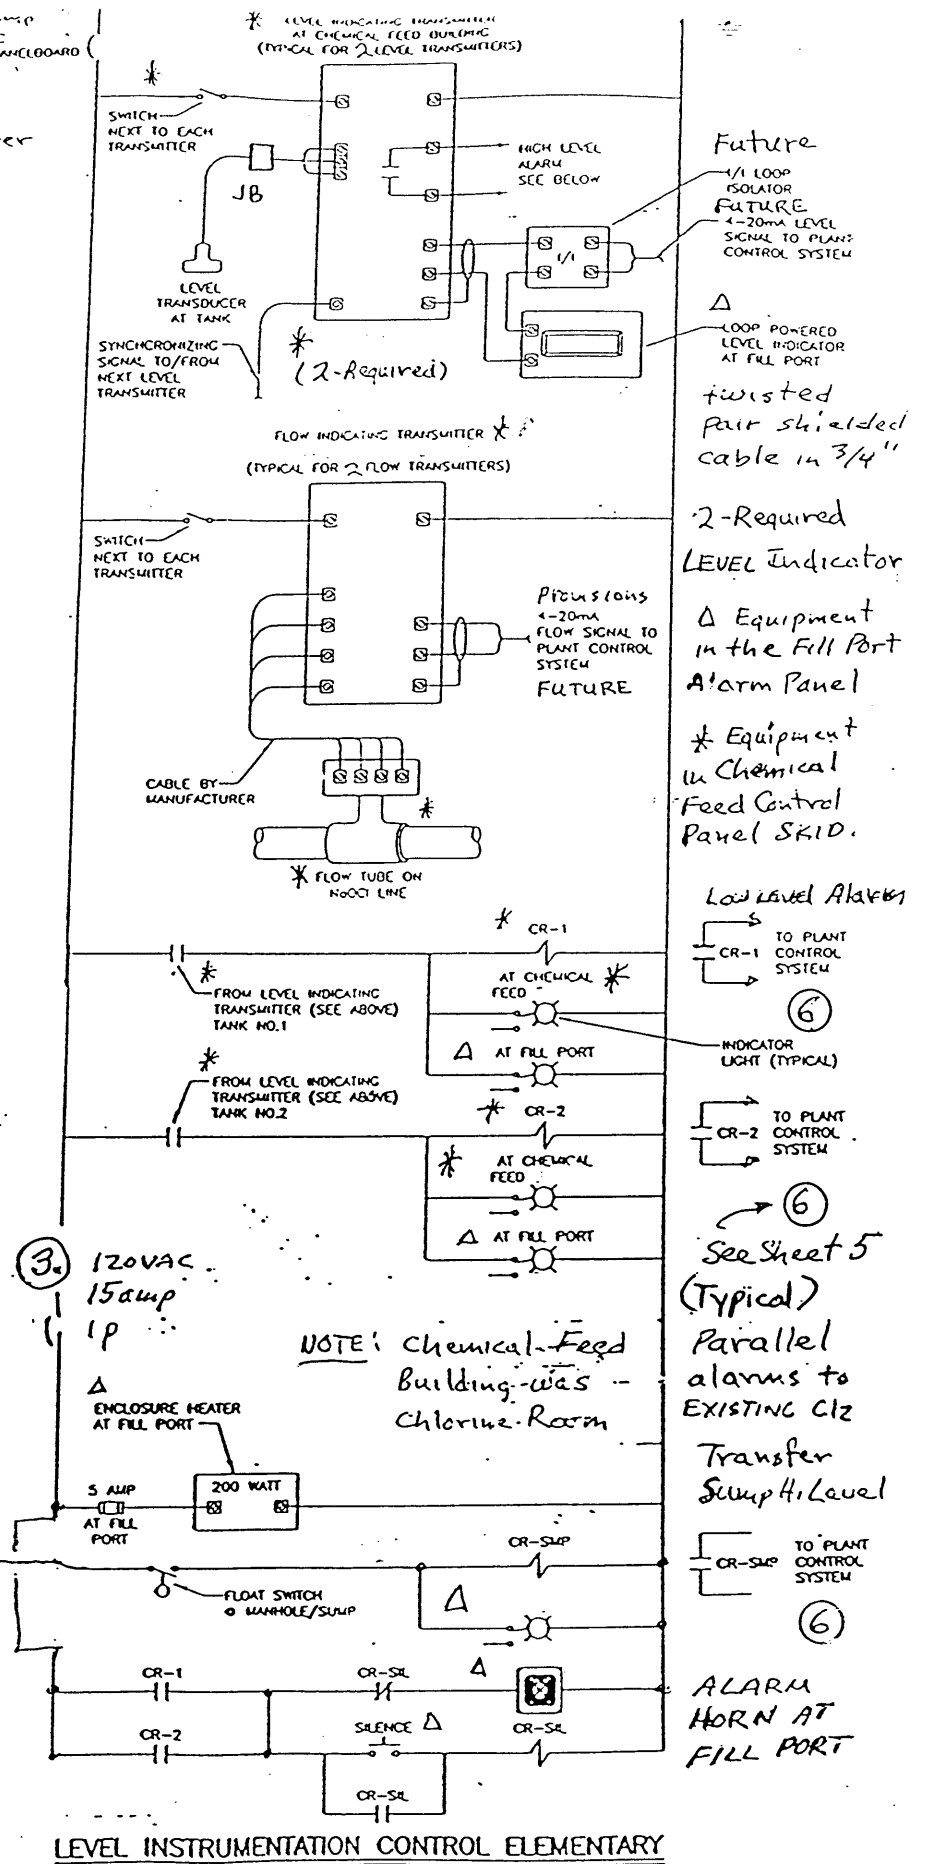 ANELBOARD
LEVEL INDICATING TRANSMITTER
AT CHEMICAL FEED BUILDING
(TYPICAL FOR 2 LEVEL TRANSMITTERS)
SWITCH
NEXT TO EACH
TRANSMITTER
JB
HIGH LEVEL
ALARM
SEE BELOW
Future
I/I LOOP
ISOLATOR
FUTURE
4-20mA LEVEL
SIGNAL TO PLANT
CONTROL SYSTEM
I/I
LEVEL
TRANSDUCER
AT TANK
Δ
LOOP POWERED
LEVEL INDICATOR
AT FILL PORT
SYNCHRONIZING
SIGNAL TO/FROM
NEXT LEVEL
TRANSMITTER
* (2-Required)
twisted
pair shielded
cable in 3/4"
FLOW INDICATING TRANSMITTER *
(TYPICAL FOR 2 FLOW TRANSMITTERS)
2-Required
LEVEL Indicator
SWITCH
NEXT TO EACH
TRANSMITTER
Provisions
4-20mA
FLOW SIGNAL TO
PLANT CONTROL
SYSTEM
FUTURE
Δ Equipment
in the Fill Port
Alarm Panel
* Equipment
in Chemical
Feed Control
Panel SKID.
CABLE BY
MANUFACTURER
* FLOW TUBE ON
NaOCl LINE
Low Level Alarm
* CR-1
CR-1
TO PLANT
CONTROL
SYSTEM
6
* FROM LEVEL INDICATING
TRANSMITTER (SEE ABOVE)
TANK NO.1
AT CHEMICAL *
FEED
INDICATOR
LIGHT (TYPICAL)
Δ AT FILL PORT
* FROM LEVEL INDICATING
TRANSMITTER (SEE ABOVE)
TANK NO.2
* CR-2
CR-2
TO PLANT
CONTROL
SYSTEM
6
* AT CHEMICAL
FEED
Δ AT FILL PORT
See Sheet 5
(Typical)
Parallel
alarms to
EXISTING Cl2
3. 120VAC
15amp
1P
NOTE: Chemical Feed
Building was
Chlorine Room
Δ
ENCLOSURE HEATER
AT FILL PORT
200 WATT
5 AMP
AT FILL
PORT
Transfer
Sump Hi Level
CR-SMP
CR-SMP
TO PLANT
CONTROL
SYSTEM
6
FLOAT SWITCH
@ MANHOLE/SUMP
Δ
CR-1
CR-SIL
Δ
ALARM
HORN AT
FILL PORT
CR-2
SILENCE Δ
CR-SIL
CR-SIL
LEVEL INSTRUMENTATION CONTROL ELEMENTARY